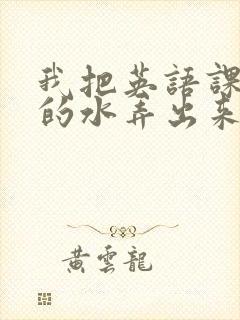 我把英語課
的水弄出來
黃雲龍